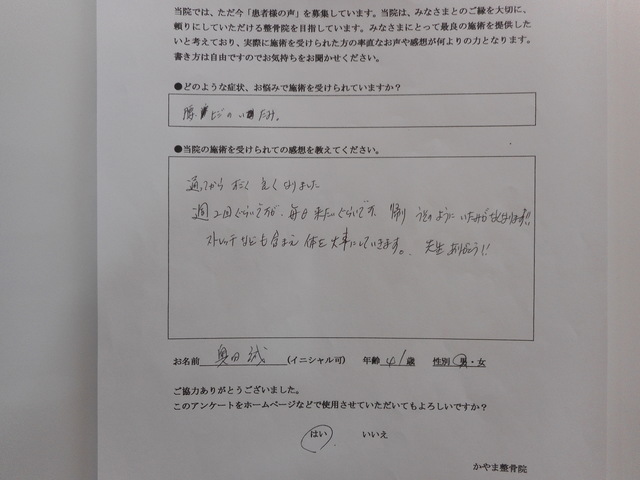 当院では、ただ今「患者様の声」を募集しています。当院は、みなさまとのご縁を大切に、
頼りにしていただける整骨院を目指しています。みなさまにとって最良の施術を提供した
いと考えており、実際に施術を受けられた方の率直なお声や感想が何よりの力となります。
書き方は自由ですのでお気持ちをお聞かせください。
●どのような症状、お悩みで施術を受けられていますか？
腰 ヒジのいたみ。
●当院の施術を受けられての感想を教えてください。
通ってから だいぶ 良くなりました
週2回ぐらいですが、毎日来たいぐらいです、帰り うそのように いたみがなくなります!!
ストレッチなども含まえ 体を大事にしていきます。 先生ありがとう!!
お名前 奥田誠 (イニシャル可) 年齢 41 歳 性別 男・女
ご協力ありがとうございました。
このアンケートをホームページなどで使用させていただいてもよろしいですか？
はい いいえ
かやま整骨院